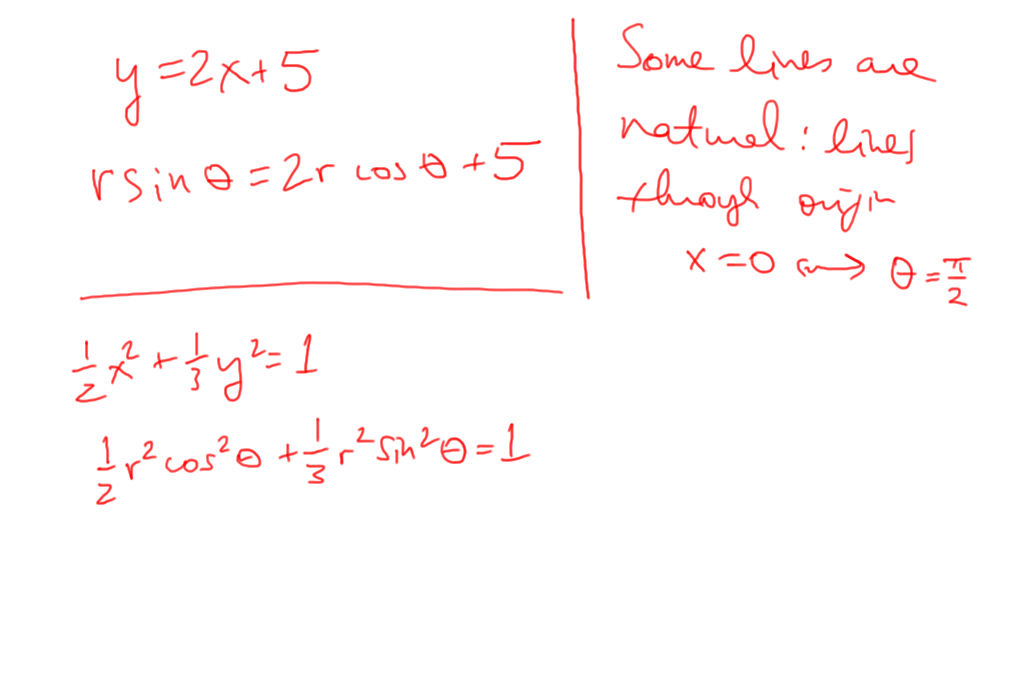 y = 2x + 5
r sin θ = 2r cos θ + 5
Some lines are
natural: lines
through origin
x = 0 ⟿ θ = π/2
1/2 x² + 1/3 y² = 1
1/2 r² cos² θ + 1/3 r² sin² θ = 1